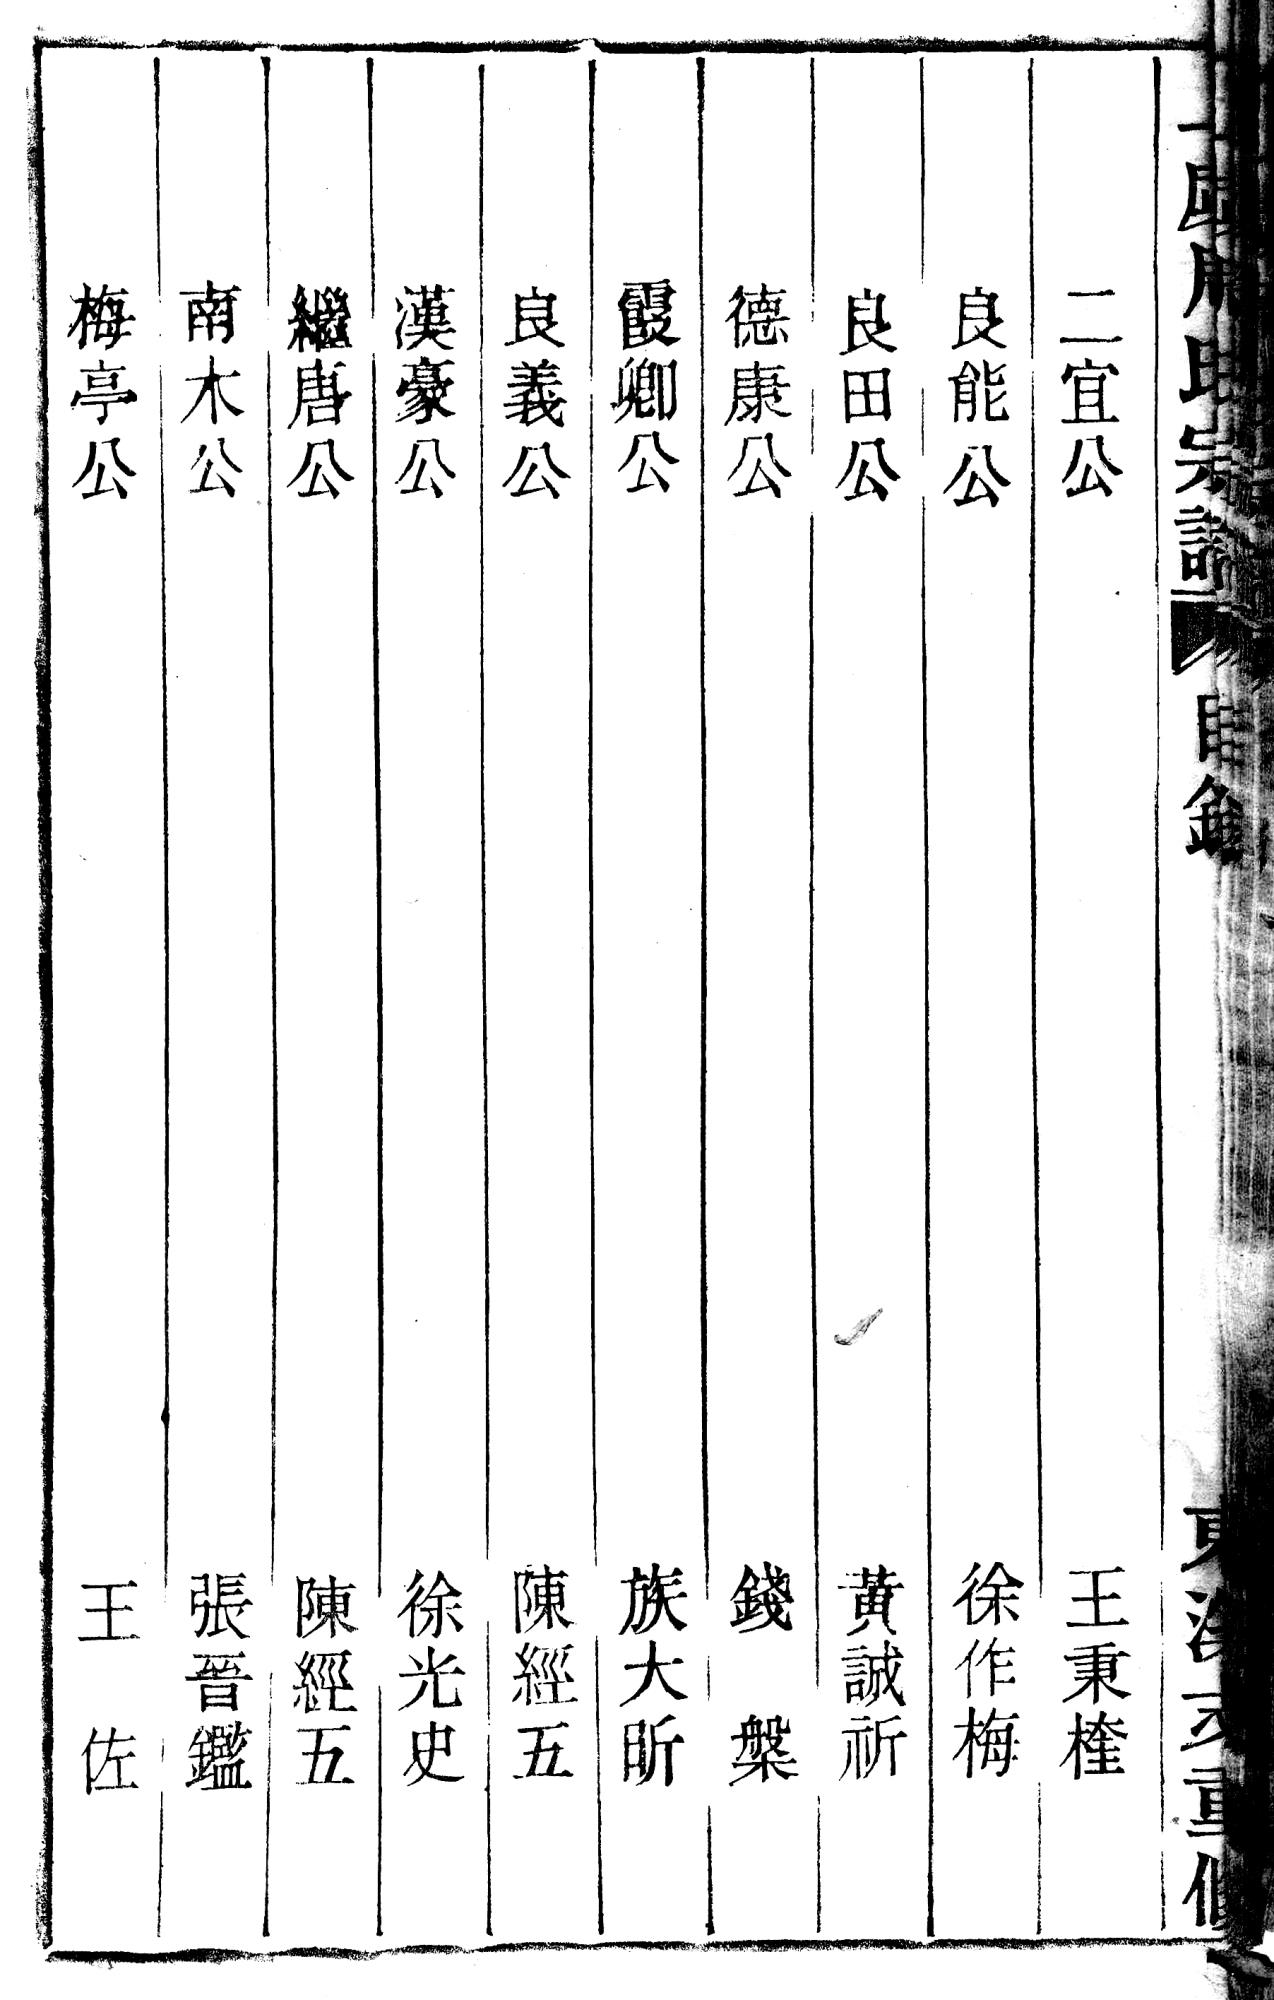 宗譜
目錄
東
重修
二宜公 王秉㮮
良能公 徐作梅
良田公 黃誠祈
德康公 錢槃
霞卿公 族大昕
良義公 陳經五
漢豪公 徐光史
繼唐公 陳經五
南木公 張晉鑑
梅亭公 王佐